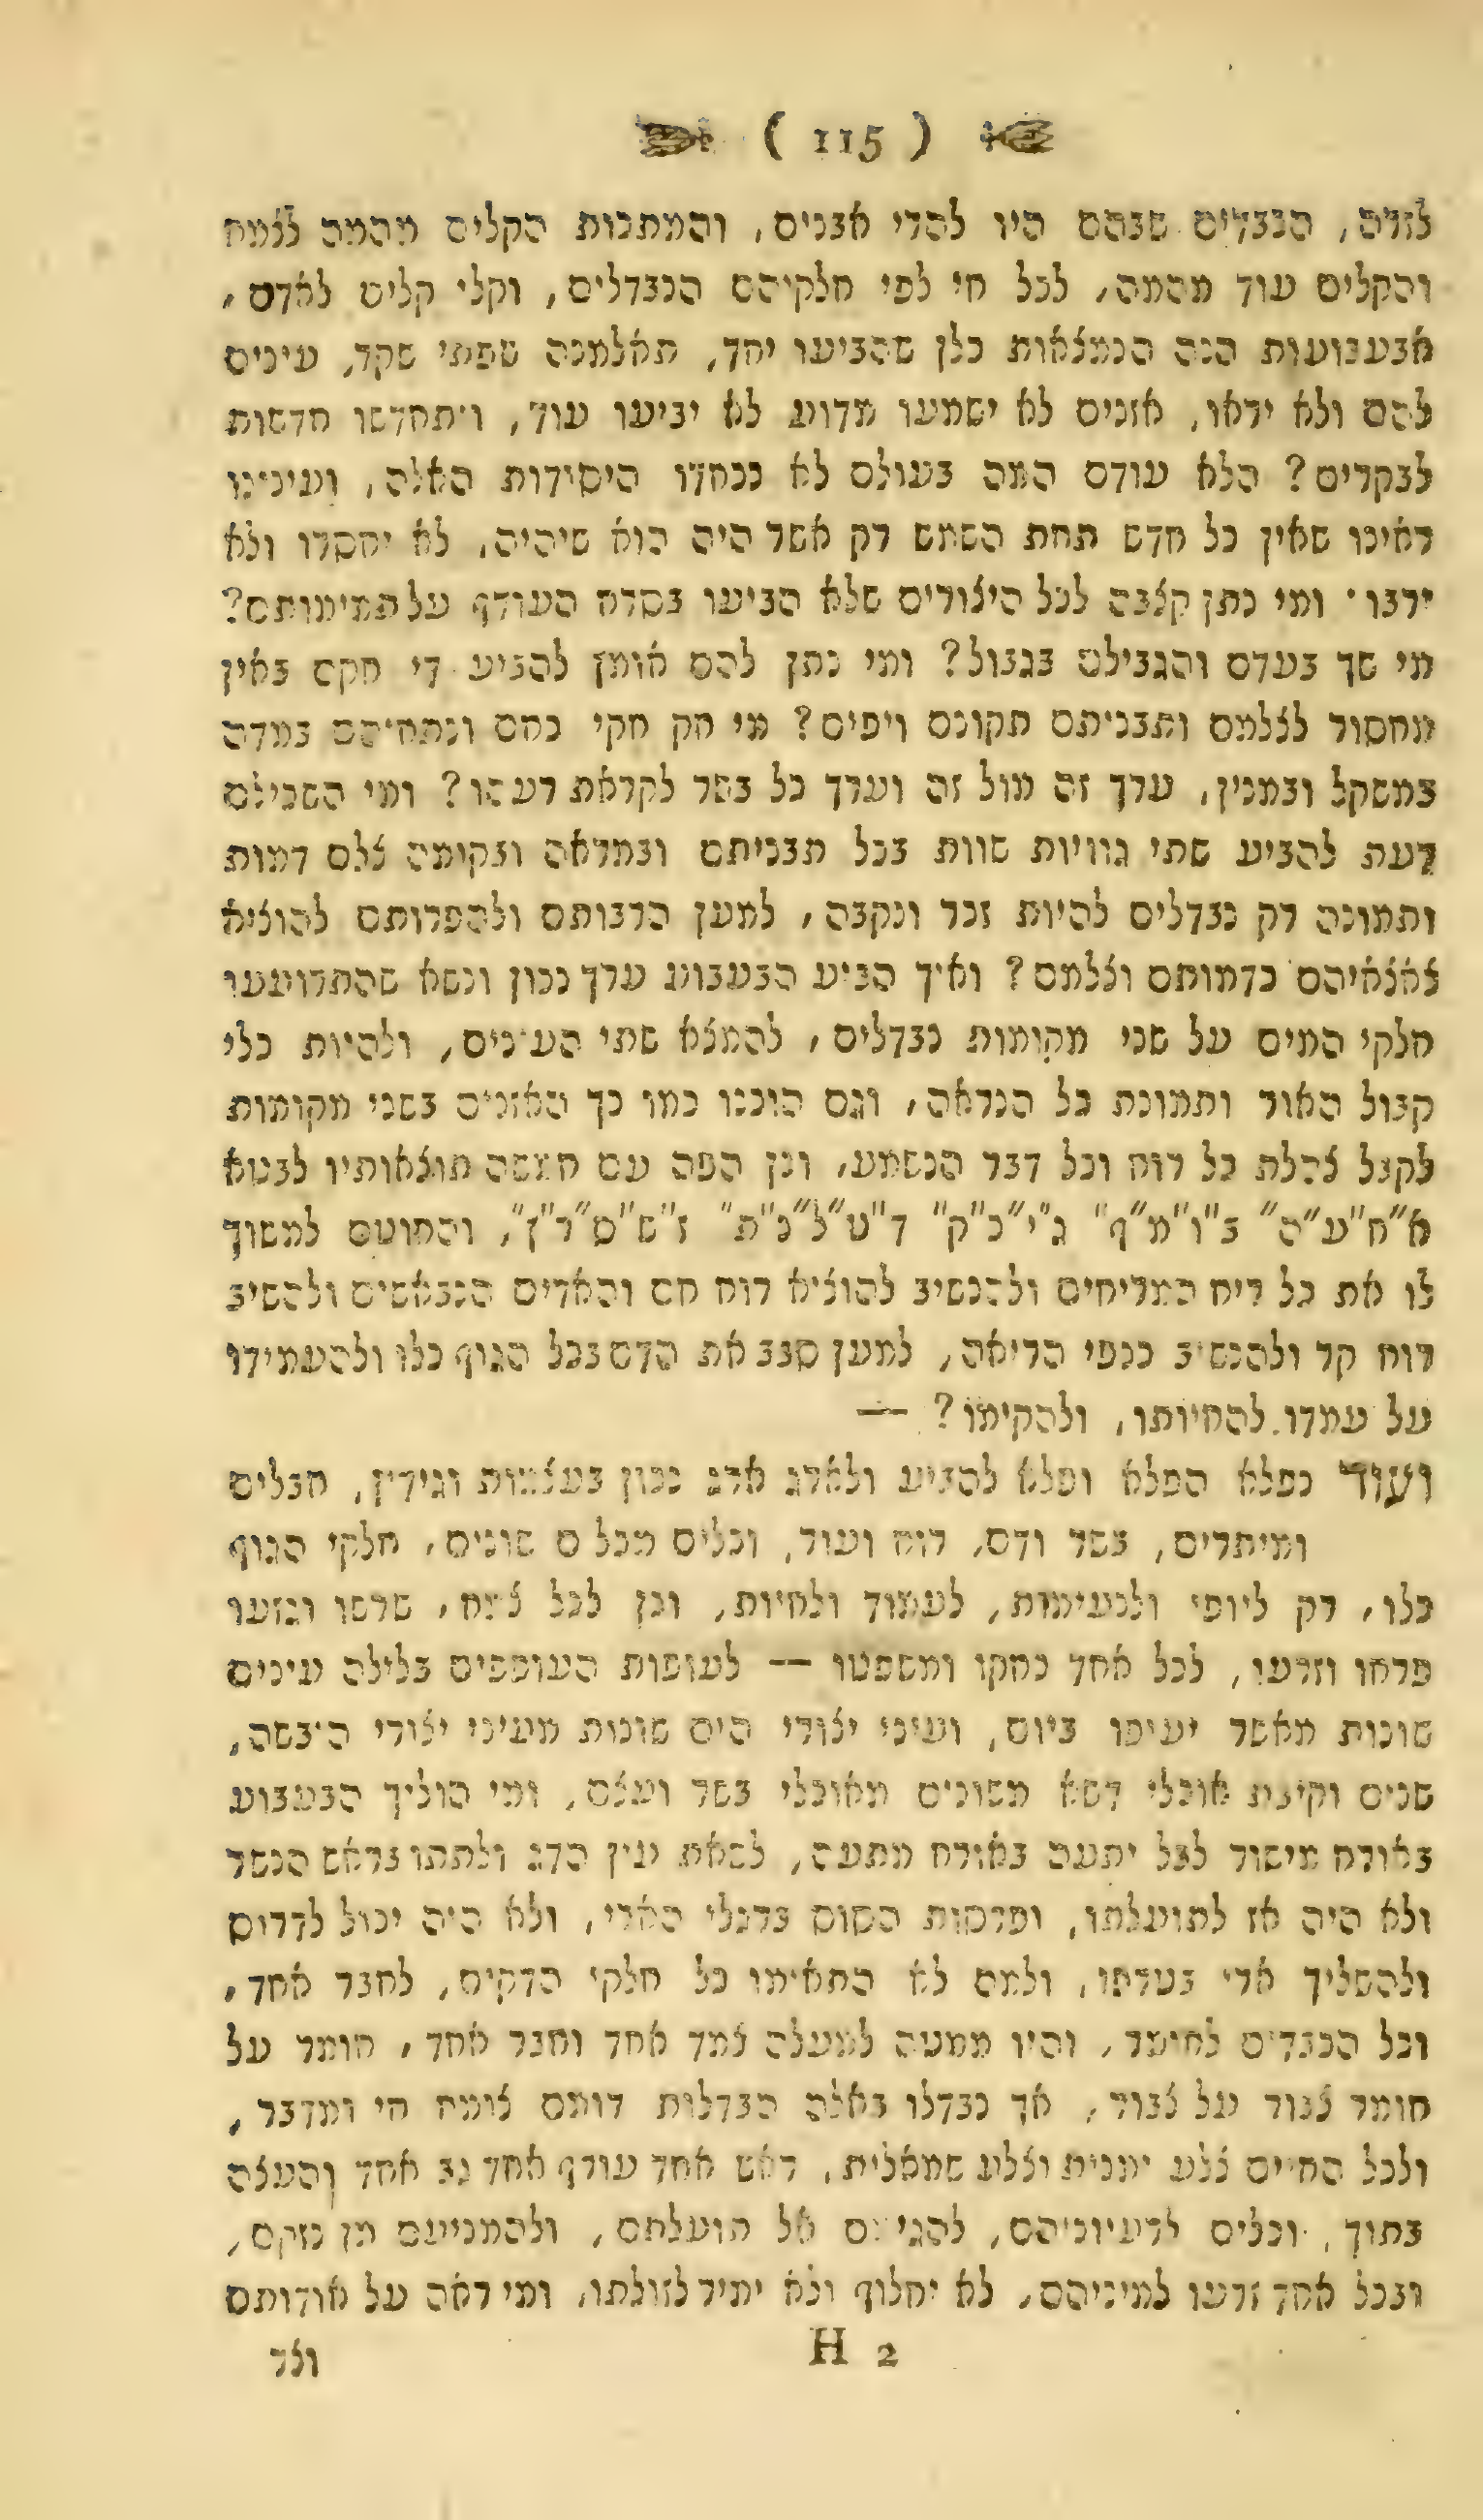 ( 115 )
לזרה, הכבדים שבהם היו להרי אבנים, והמתכות הקלים מהמה לצמח
והקלים עוד מהמה, לכל חי לפי חלקיהם הנבדלים, וקלי קלים לאדם,
אבעבועות הנה הנמצאות כלן שהביעו יחד, תאלמנה שפתי שקר, עינים
להם ולא יראו, אזנים לא ישמעו מדוע לא יביעו עוד, ויתחדשו חדשות
לבקרים? הלא עודם המה בעולם לא נכחדו היסודות האלה, ועינינו
ראינו שאין כל חדש תחת השמש רק אשר היה הוא שיהיה, לא יחסרו ולא
ירבו ומי נתן קצבה לכל היצורים שלא הביעו בסרח העודף על תמימותם?
מי שך בעדם והגבילם בגבול? ומי נתן להם אומן להביע די חקם באין
מחסור לצלמם ותבניתם תקונם ויפים? מי חק חקי בהם ונתחיהם במדה
במשקל ובמנין, ערך זה מול זה וערך כל בשר לקראת רעהו? ומי השכילם
דעת להביע שתי גוויות שוות בכל תבניתם ובמראה ובקומה צלם דמות
ותמונה רק נבדלים להיות זכר ונקבה, למען הרבותם ולהפרותם להוציא
צאצאיהם כדמותם וצלמם? ואיך הביע הבעבוע ערך נכון ונשא שהתרועעו
חלקי המים על שני מקומות נבדלים, להמצא שתי העינים, ולהיות כלי
קבול האור ותמונת כל הנראה, וגם הוכנו כמו כך האזנים בשני מקומות
לקבל צהלת כל רוח וכל דבר הנשמע, וכן הפה עם חמשה תוצאותיו לבטא
א"ח"ע"ה" ב"ו"מ"ף" ג"י"כ"ק" ד"ט"ל"נ"ת" ז"ש"ס"ר"ץ", והחוטם למשוך
לו את כל ריח המריחים ולהנשיב להוציא רוח חם והארים הנבאשים ולהשיב
רוח קר ולהנשיב כנפי הריאה, למען סבב את הדם בכל הגוף כלו ולהעמידו
על עמדו להחיותו, ולהקימו? —
ועוד נפלא הפלא ופלא להביע ולארג ארג נכון בעצמות וגידין, חבלים
ומיתרים, בשר ודם, רוח ועוד, וכלים מכלים שונים, חלקי הגוף
כלו, רק ליופי ולנעימות, לעמוד ולחיות, וכן לכל צמח, שרשו וגזעו
פרחו וזרעו, לכל אחד כחקו ומשפטו — לעופות העופפים בלילה עינים
שונות מאשר יעופו ביום, ועיני יצורי הים שונות מעיני יצורי היבשה,
שנים וקיבת אוכלי דשא משונים מאוכלי בשר ועצם, ומי הוליך הבעבוע
באורח מישור לבל יתעה באורח מתעה, לשאת עין הדג ולתתו בראש הנשר
ולא היה אז לתועלתו, ופרסות הסוס ברגלי הארי, ולא היה יכול לדרוס
ולהשליך ארי בעדתו, ולמה לא התאימו כל חלקי הדקים, לחבר אחד,
וכל הכבדים לחיעד, והיו ממטה למעלה צמד אחד וחבר אחד, חומר על
חומר צבור על צבור, אך נבדלו באלה הבדלות דומם צומח חי ומדבר,
ולכל החיים צלע ימנית וצלע שמאלית, ראש אחד עורף אחד גב אחד והעצה
בתוך, וכלים לרעיוניהם, להגיעם אל תועלתם, ולהמניעם מן נזקם,
ובכל אחד זרעו למיניהם, לא יחלוף ולא ימיר לזולתו, ומי ראה על אודותם
H 2
וצר